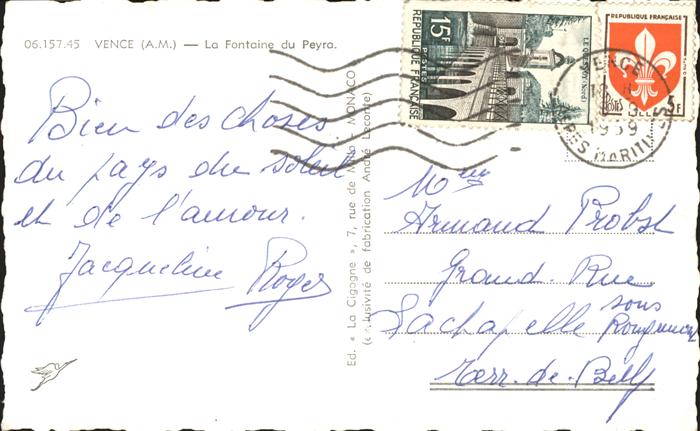 06.157.45 VENCE (A.M.) — La Fontaine du Peyra.
Bien des choses
du pays du soleil
et de l'amour.
Jacqueline Roger
Ed. « La Cigogne », 7, rue de Millo - MONACO
(exclusivité de fabrication André Leconte)
15F
POSTES
REPUBLIQUE FRANÇAISE
LE QUESNOY (Nord)
REPUBLIQUE FRANÇAISE
POSTES
5F
VENCE
1959
ALPES MARITIMES
Mme
Armand Probst
Grand. Rue
Lachapelle sous Rougemont
Terr. de. Belf